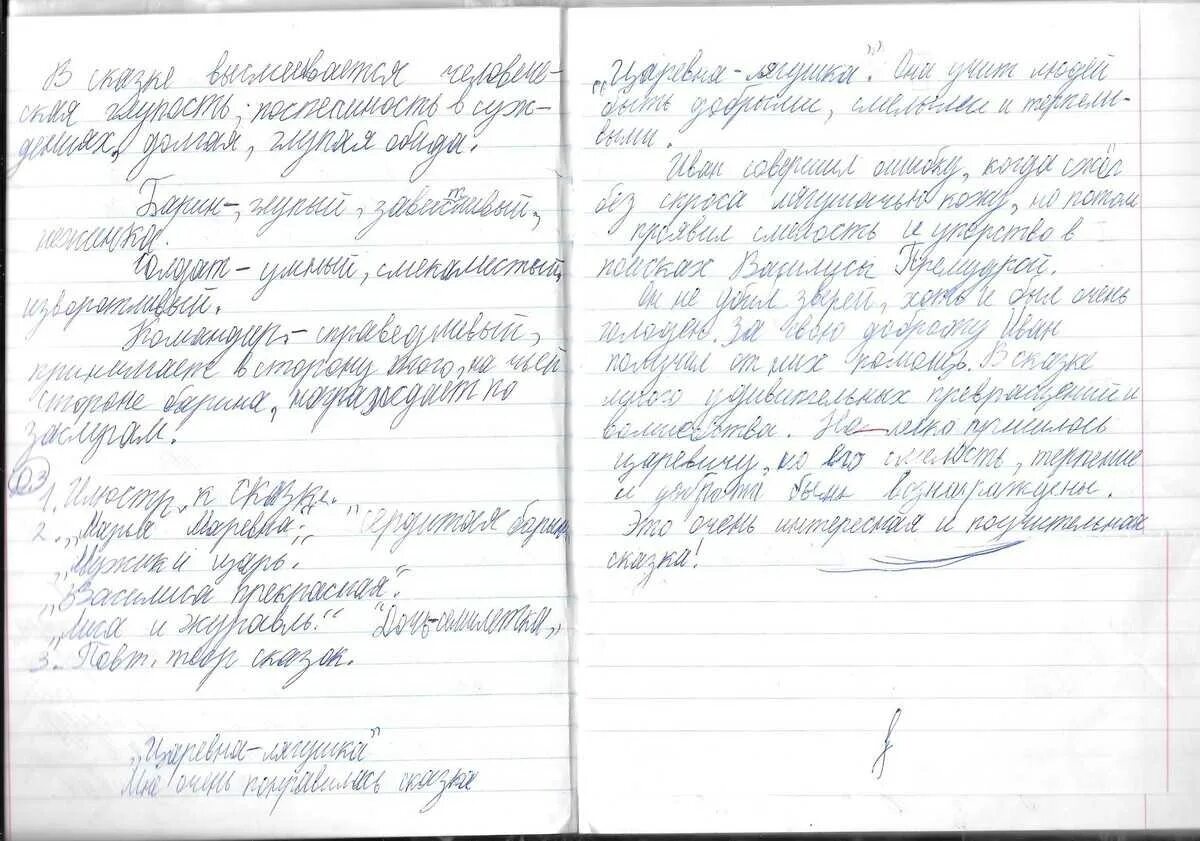 В сказке высмеивается человече-
ская глупость; поспешность в суж-
дениях, долгая, глупая обида.
Барин-, глупый, завистливый,
неженка.
Солдат - умный, смекалистый,
изворотливый.
Командир - справедливый,
принимает в сторону того, на чьей
стороне барина, награждает по
заслугам.
Д.З
1. Илюстр. к сказке.
2. „Марья Маревна." "Сердитая барыня
„Мужик и царь.
„Василиса прекрасная".
„Лиса и журавль." "Дочь-семилетка„
3. Повт. теор сказок.
„Царевна-лягушка"
Мне очень понравилась сказка
„Царевна-лягушка". Она учит людей
быть добрыми, смелыми и терпели-
выми.
Иван совершил ошибку, когда сжёг
без спроса лягушачью кожу, но потом
проявил смелость и упорство в
поисках Василисы Премудрой.
Он не убил зверей, хоть и был очень
голоден. За свою доброту Иван
получил от них помощь. В сказке
много удивительных превращений и
волшебства. Не легко пришлось
царевичу, но его смелость, терпение
и доброта были вознаграждены.
Это очень интересная и поучительная
сказка!